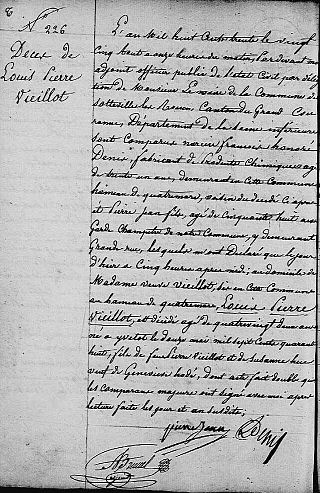 8
N° 226
Deces de
Louis Pierre
Vieillot
L'an mil huit Cent trente le vingt
Cinq Aout a onze heures du matin Par devant moi
adjoint officier public de l'etat Civil par délega
tion de Monsieur Le maire de la Commune de
Sotteville les Rouen, Canton du Grand Cou
ronne, Département de la Seine inferieure
sont Comparus François honoré
Denis, fabricant de Produits Chimiques agé
de trente un ans, demeurant en Cette Commune
hameau de quatremare, voisin du décédé Ci après
et Pierre Jean fils, agé de Cinquante huit ans
Gard Champetre de cette Commune, y demeurant
Grande rue, lesquels m'ont Déclaré que le jour
d'hier a Cinq heures apres midi, au domicile de
Madame veuve Vieillot, sis en Cette Commune
au hameau de quatremare, Louis Pierre
Vieillot, est décédé agé de quatrevingt deux ans
né a yvetot le douze mai mil sept Cent quarante
huit, fils de feu Pierre Vieillot et de Susanne
veuf de Genevieve dont acte fait double que
les Comparans majeurs ont signé avec moi apres
lecture faite les jour et an susdits,
pierre Jean Denis